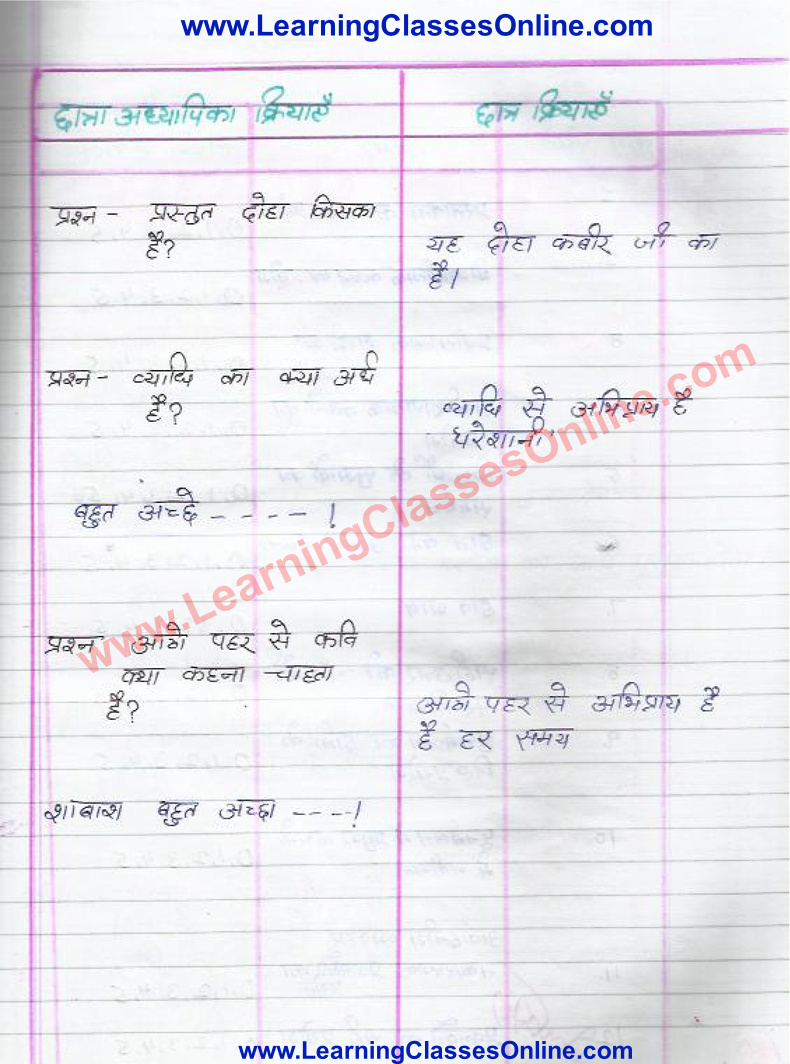 www.LearningClassesOnline.com
छात्रा अध्यापिका क्रियाएँ
छात्र क्रियाएँ
प्रश्न - प्रस्तुत दोहा किसका
है?
यह दोहा कबीर जी का
है।
प्रश्न - व्याधि का क्या अर्थ
है?
व्याधि से अभिप्राय है
परेशानी
बहुत अच्छे - - - - !
www.LearningClassesOnline.com
प्रश्न आठो पहर से कवि
क्या कहना चाहता
है?
आठो पहर से अभिप्राय है
है हर समय
शाबाश बहुत अच्छा - - - -!
www.LearningClassesOnline.com